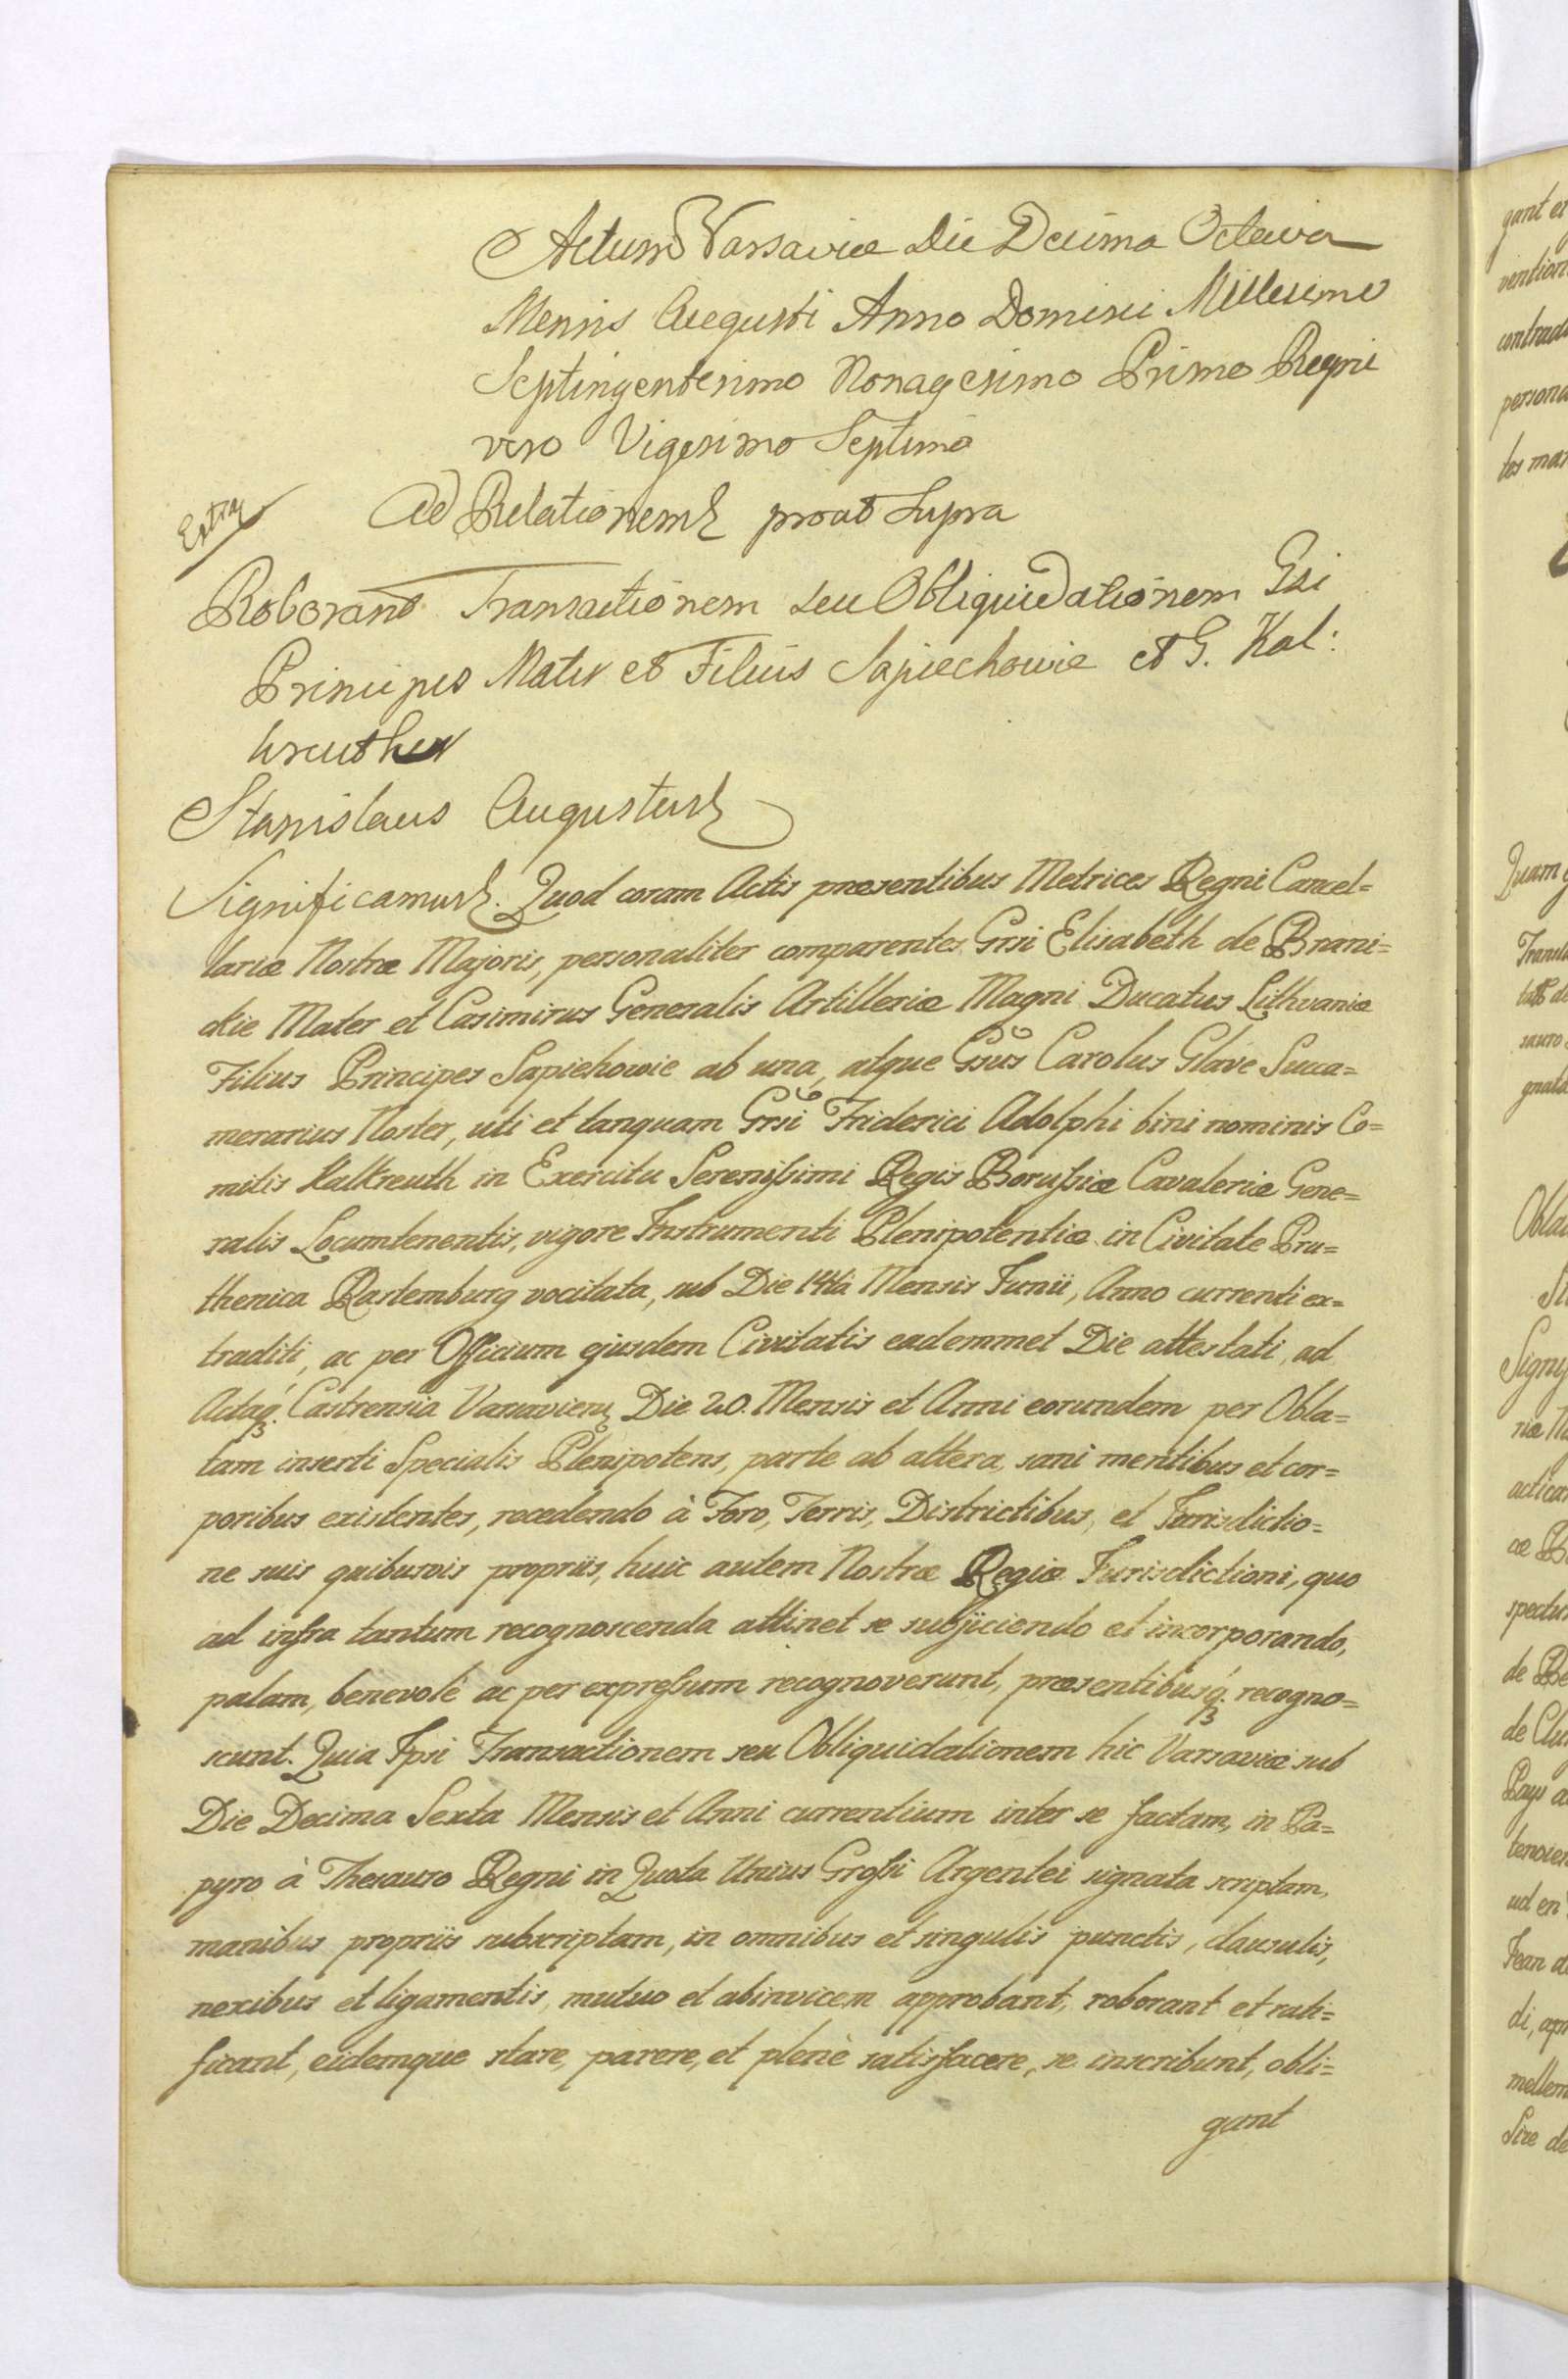 Actum Varsaviæ Die Decima Octava
Mensis Augusti Anno Domini Millesimo
Septingentesimo Nonagesimo Primo Regni
vero Vigesimo Septimo
Ad Relationem prout Supra
Extra
Roborant Transactionem seu Obliquidationem Gsi
Principes Mater et Filius Sapiechowie et G. Kal:
kreuther
Stanislaus Augustus
Significamus. Quod coram Actis præsentibus Metrices Regni Cancel=
lariæ Nostræ Majoris, personaliter comparentes Grsi Elisabeth de Brani=
ckie Mater et Casimirus Generalis Artilleriæ Magni Ducatus Lithvaniæ
Filius Principes Sapiehowie ab una, atque Gsus Carolus Glave Succa=
merarius Noster, uti et tanquam Grsi Friderici Adolphi bini nominis Co=
mitis Kalkreuth in Exercitu Serenissimi Regis Borussiæ Cavaleriæ Gene=
ralis Locumtenentis, vigore Instrumenti Plenipotentiæ in Civitate Pru=
thenica Rastemburg vocitata, sub Die 14ta Mensis Junii, Anno currenti ex=
traditi, ac per Officium ejusdem Civitatis eademmet Die attestati, ad
Actaq. Castrensia Varsaviens Die 20. Mensis et Anni eorundem per Obla=
tam inserti Specialis Plenipotens, parte ab altera, sani mentibus et cor=
poribus existentes, recedendo à Foro, Terris, Districtibus, et Jurisdictio=
ne suis quibusvis propriis, huic autem Nostræ Regiæ Jurisdictioni, quo
ad infra tantum recognoscenda attinet se subjiciendo et incorporando,
palam, benevolè ac per expressum recognoverunt, præsentibusq. recogno=
scunt. Quia Ipsi Transactionem seu Obliquidationem hic Varsaviæ sub
Die Decima Sexta Mensis et Anni currentium inter se factam, in Pa=
pyro à Thesauro Regni in Quota Unius Grossi Argentei signata scriptam,
manibus propriis subscriptam, in omnibus et singulis punctis, clausulis,
nexibus et ligamentis, mutuo et abinvicem approbant, roborant et rati=
ficant, eidemque stare, parere, et plenè satisfacere, se inscribunt, obli=
gant